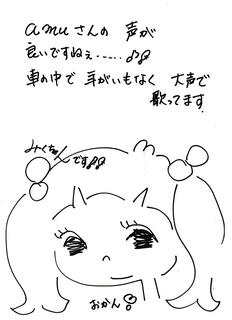 amuさんの 声が
良いですねぇ……♪♪
車の中で 耳がいもなく 大声で
歌ってます.
みくちゃん
です♪♪
おかん